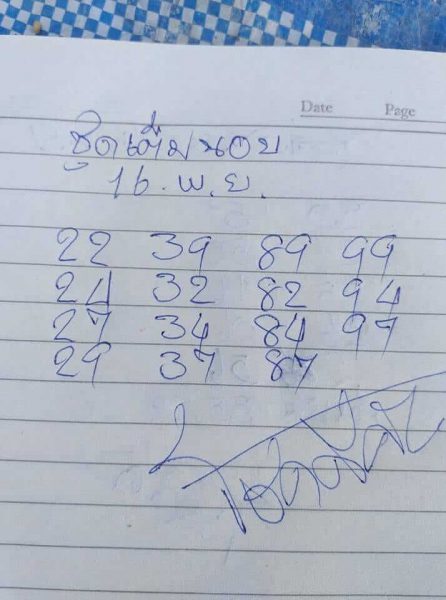 Date Page
ชุดเต็มนอย
16.พ.ย.
22 39 89 99
24 32 82 94
27 34 84 97
29 37 87